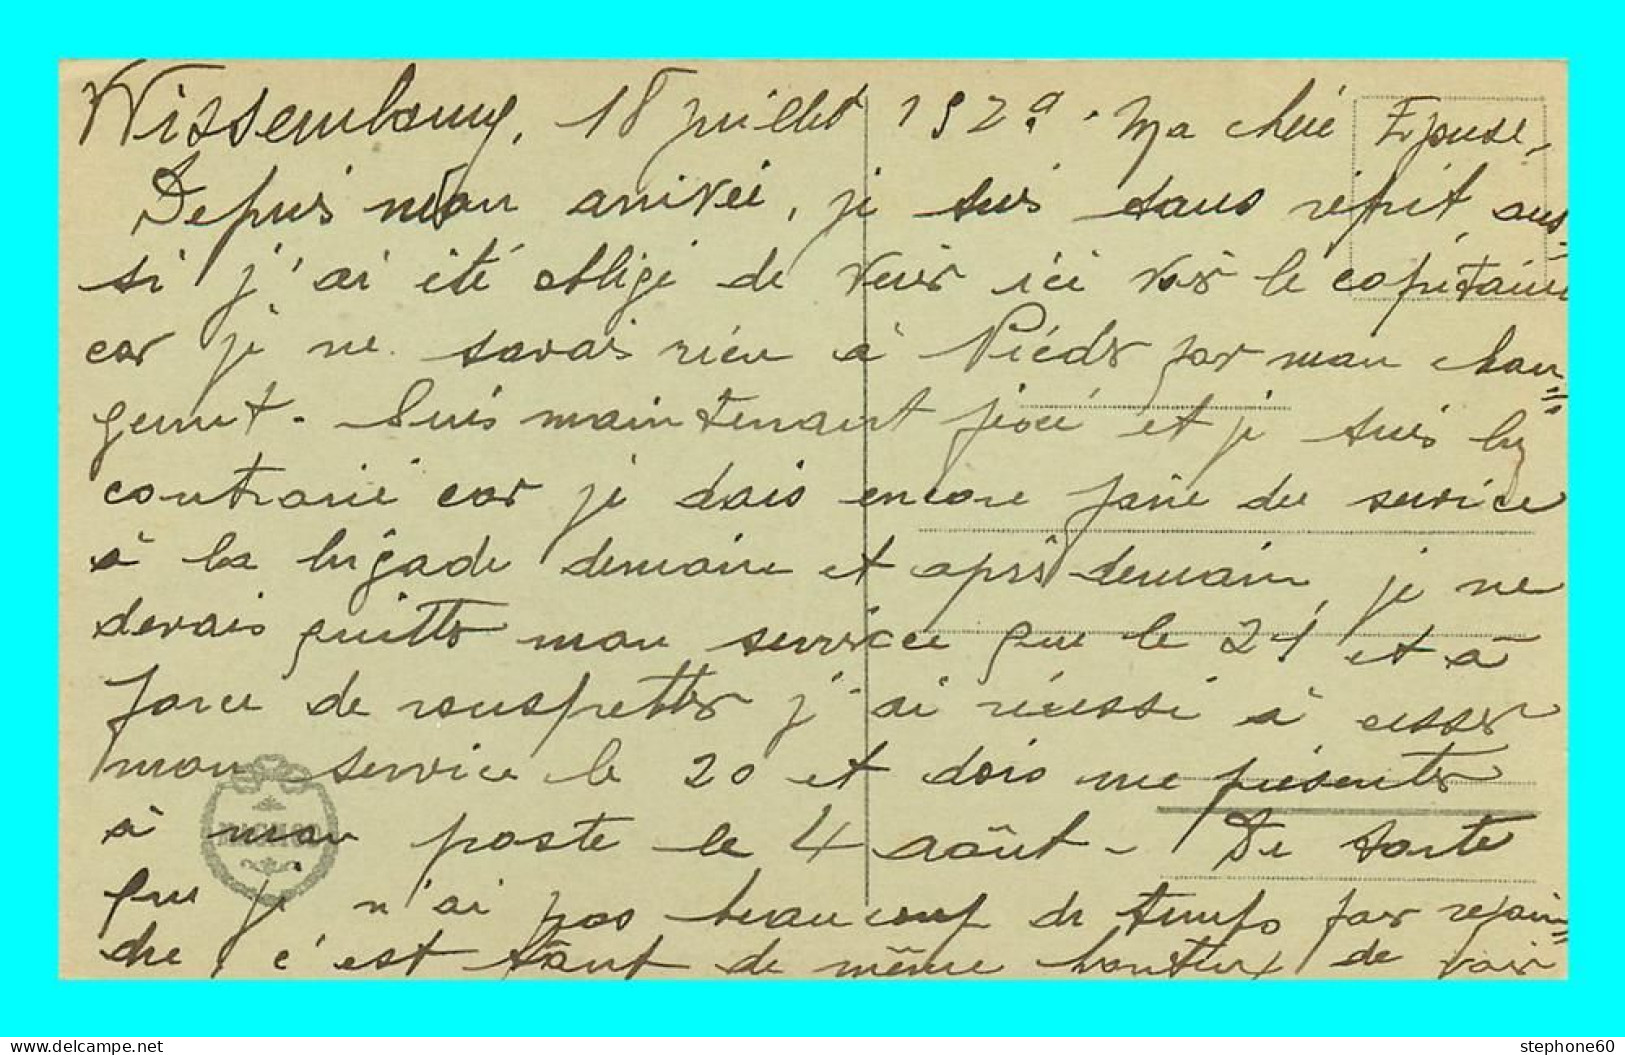 Wissembourg, 18 juillet 192 . Ma chère Epouse,
Depuis mon arrivée, je suis sans répit, aus=
si j'ai été obligé de venir ici voir le capitaine
car je ne savais rien à par mon chan=
gement. Suis maintenant fixé et je suis bien
contrarié car je dois encore faire du service
à la brigade demain et après demain, je ne
devais quitter mon service que le 21 et à
force de rouspetter j'ai réussi à cesser
mon service le 20 et dois me présenter
à mon poste le 4 août - De sorte
que je n'ai pas beaucoup de temps pour rejoin=
dre, c'est tout de même honteux de voir
www.delcampe.net
stephone60